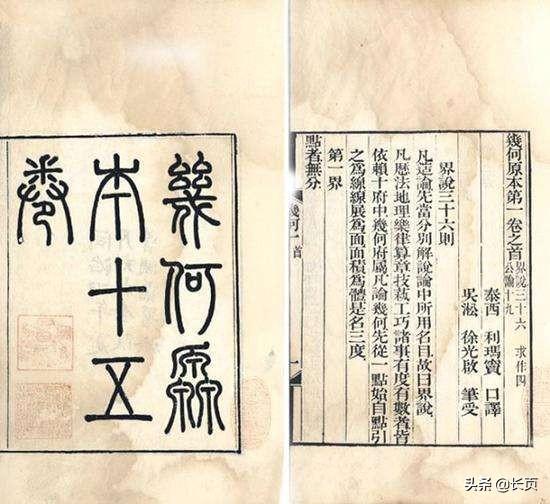 幾何原
本十五
卷
幾何原本第一卷之首 界說三十六 求作四 公論十九
泰西 利瑪竇 口譯
吳淞 徐光啟 筆受
界說三十六則
凡造論先當分別解說論中所用名目故曰界說
凡厯法地理樂律算章技藝工巧諸事有度有數者皆
依賴十府中幾何府屬凡論幾何先從一點始自點引
之爲線線展爲面面積爲體是名三度
第一界
點者無分
幾何一 首 一
头条 @长页